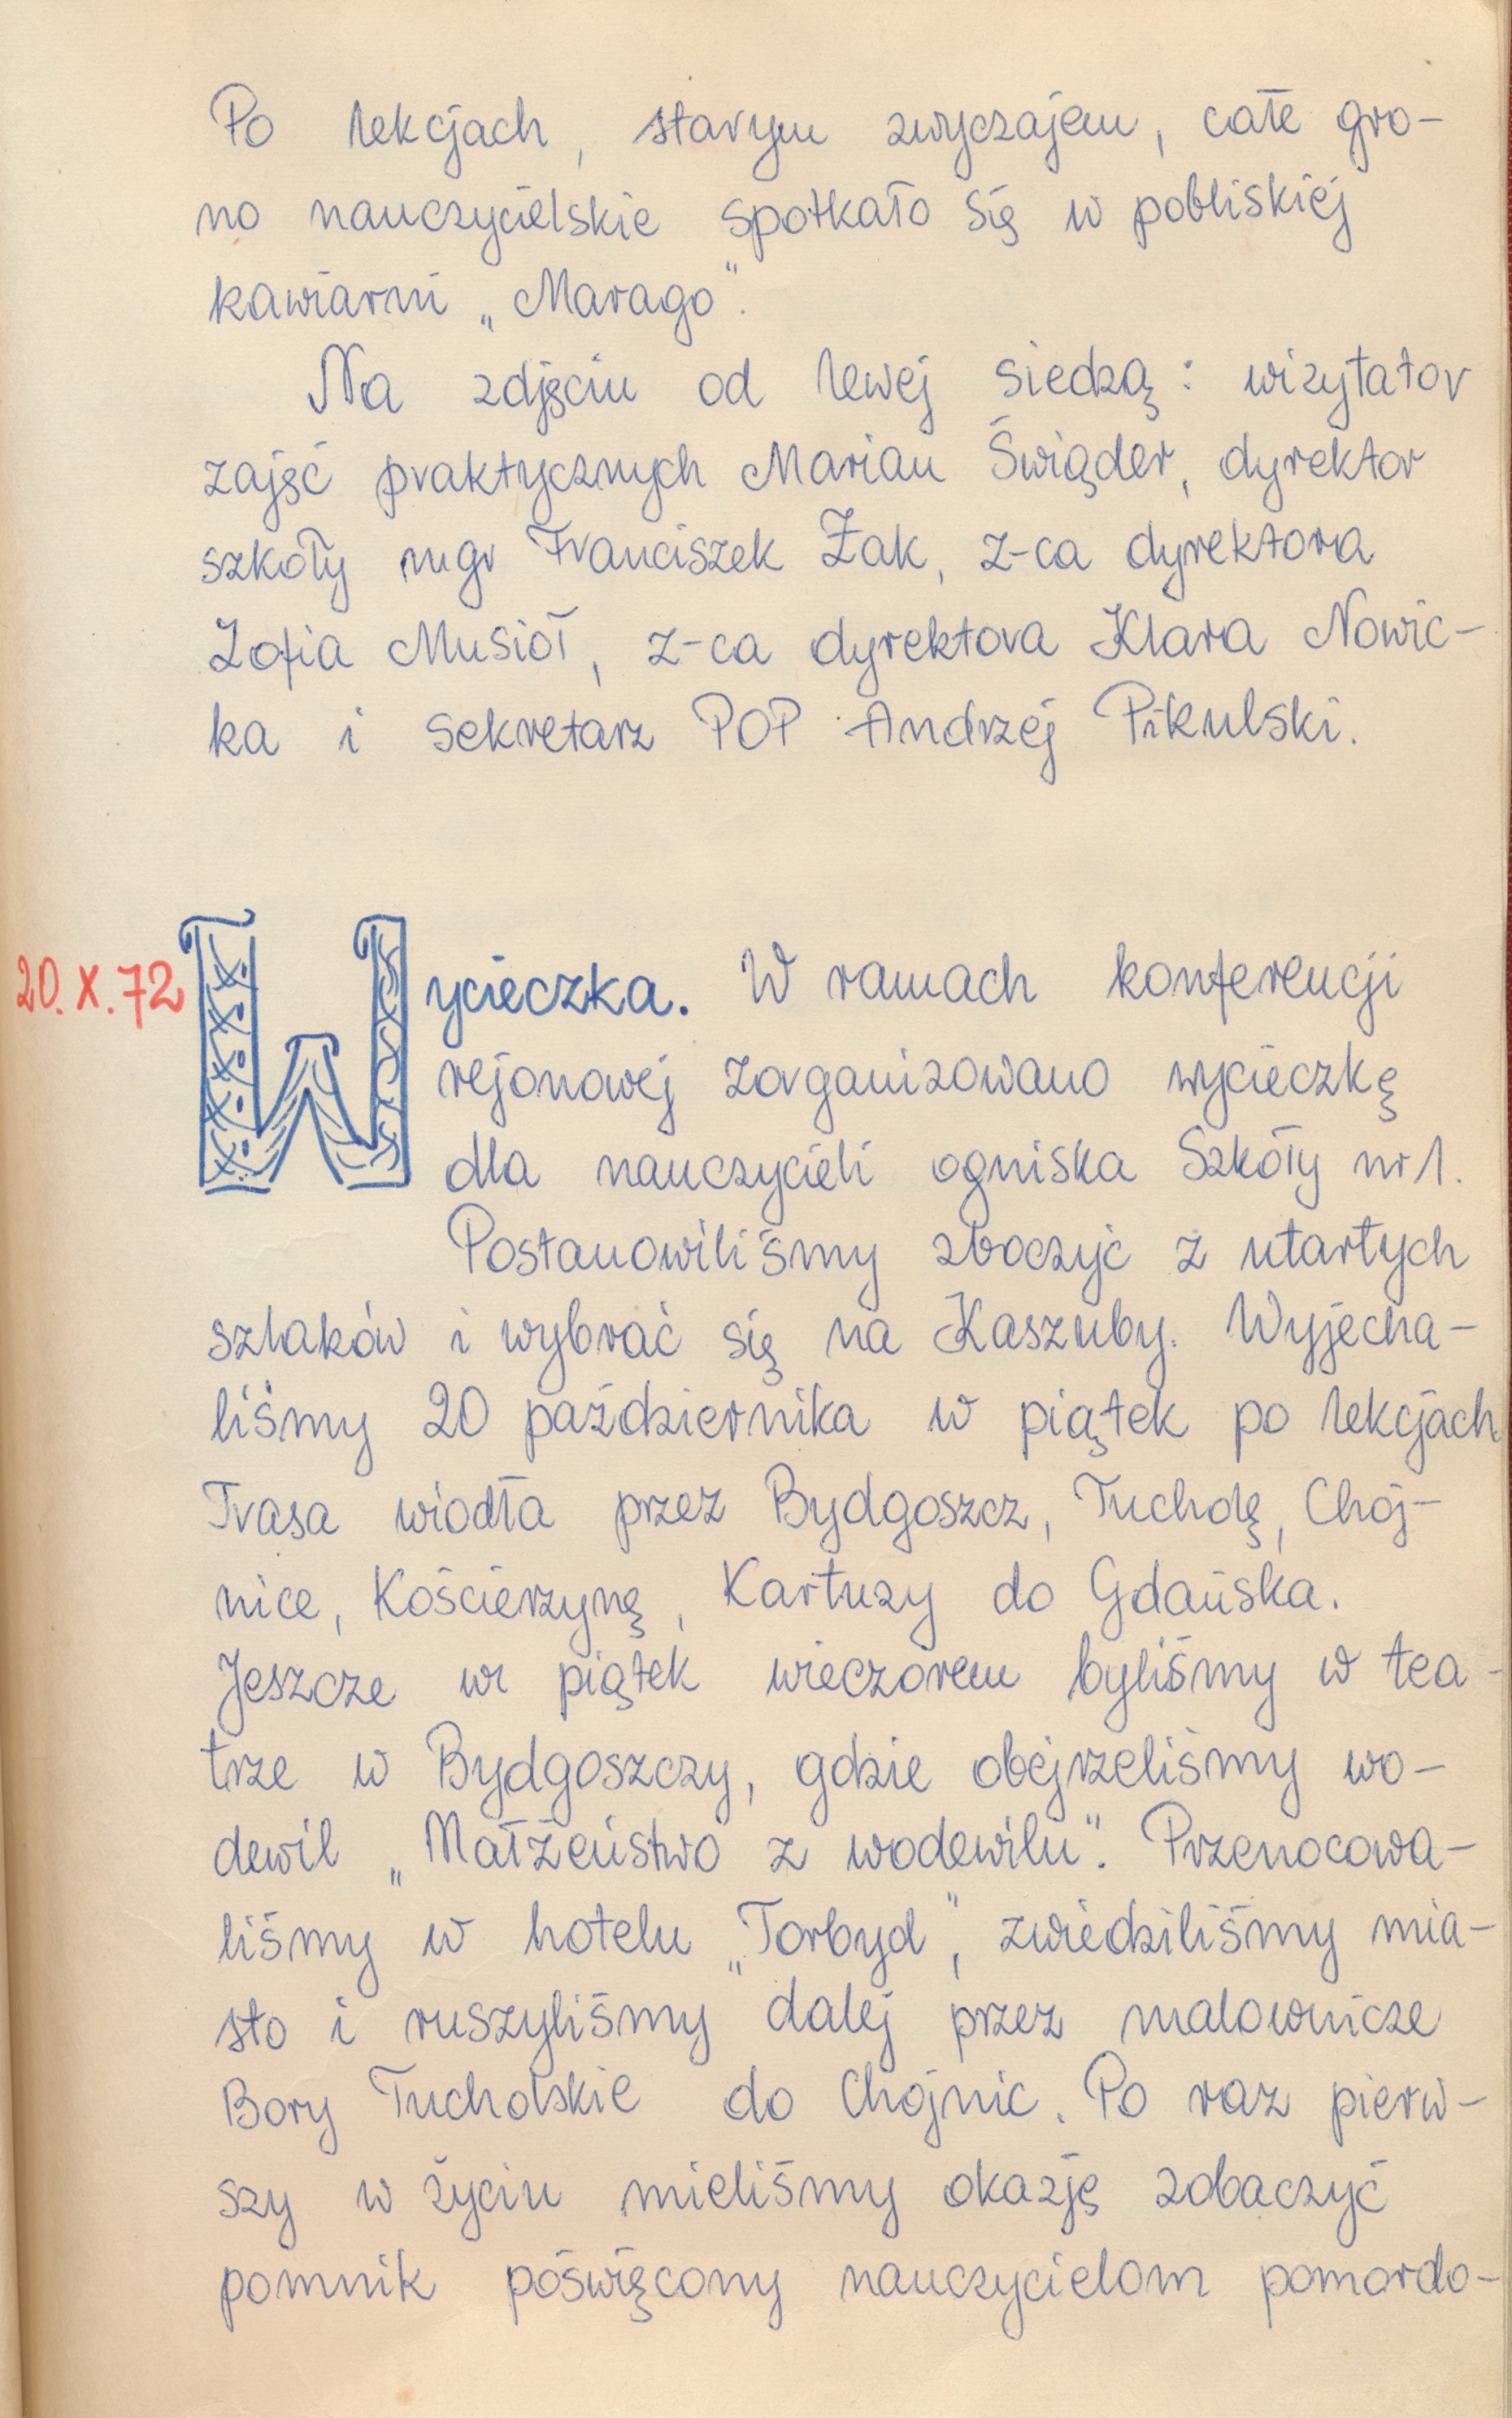 Po lekcjach, starym zwyczajem, całe gro-
no nauczycielskie spotkało się w pobliskiej
kawiarni „Marago".
Na zdjęciu od lewej siedzą: wizytator
zajęć praktycznych Marian Świąder, dyrektor
szkoły mgr Franciszek Żak, z-ca dyrektora
Zofia Musioł, z-ca dyrektora Klara Nowic-
ka i sekretarz POP Andrzej Pikulski.
20.X.72 Wycieczka. W ramach konferencji
rejonowej zorganizowano wycieczkę
dla nauczycieli ogniska Szkoły nr 1.
Postanowiliśmy zboczyć z utartych
szlaków i wybrać się na Kaszuby. Wyjecha-
liśmy 20 października w piątek po lekcjach
Trasa wiodła przez Bydgoszcz, Tucholę, Choj-
nice, Kościerzynę, Kartuzy do Gdańska.
Jeszcze w piątek wieczorem byliśmy w tea-
trze w Bydgoszczy, gdzie obejrzeliśmy wo-
dewil „Małżeństwo z wodewilu". Przenocowa-
liśmy w hotelu „Torbyd", zwiedziliśmy mia-
sto i ruszyliśmy dalej przez malownicze
Bory Tucholskie do Chojnic. Po raz pierw-
szy w życiu mieliśmy okazję zobaczyć
pomnik poświęcony nauczycielom pomordo-